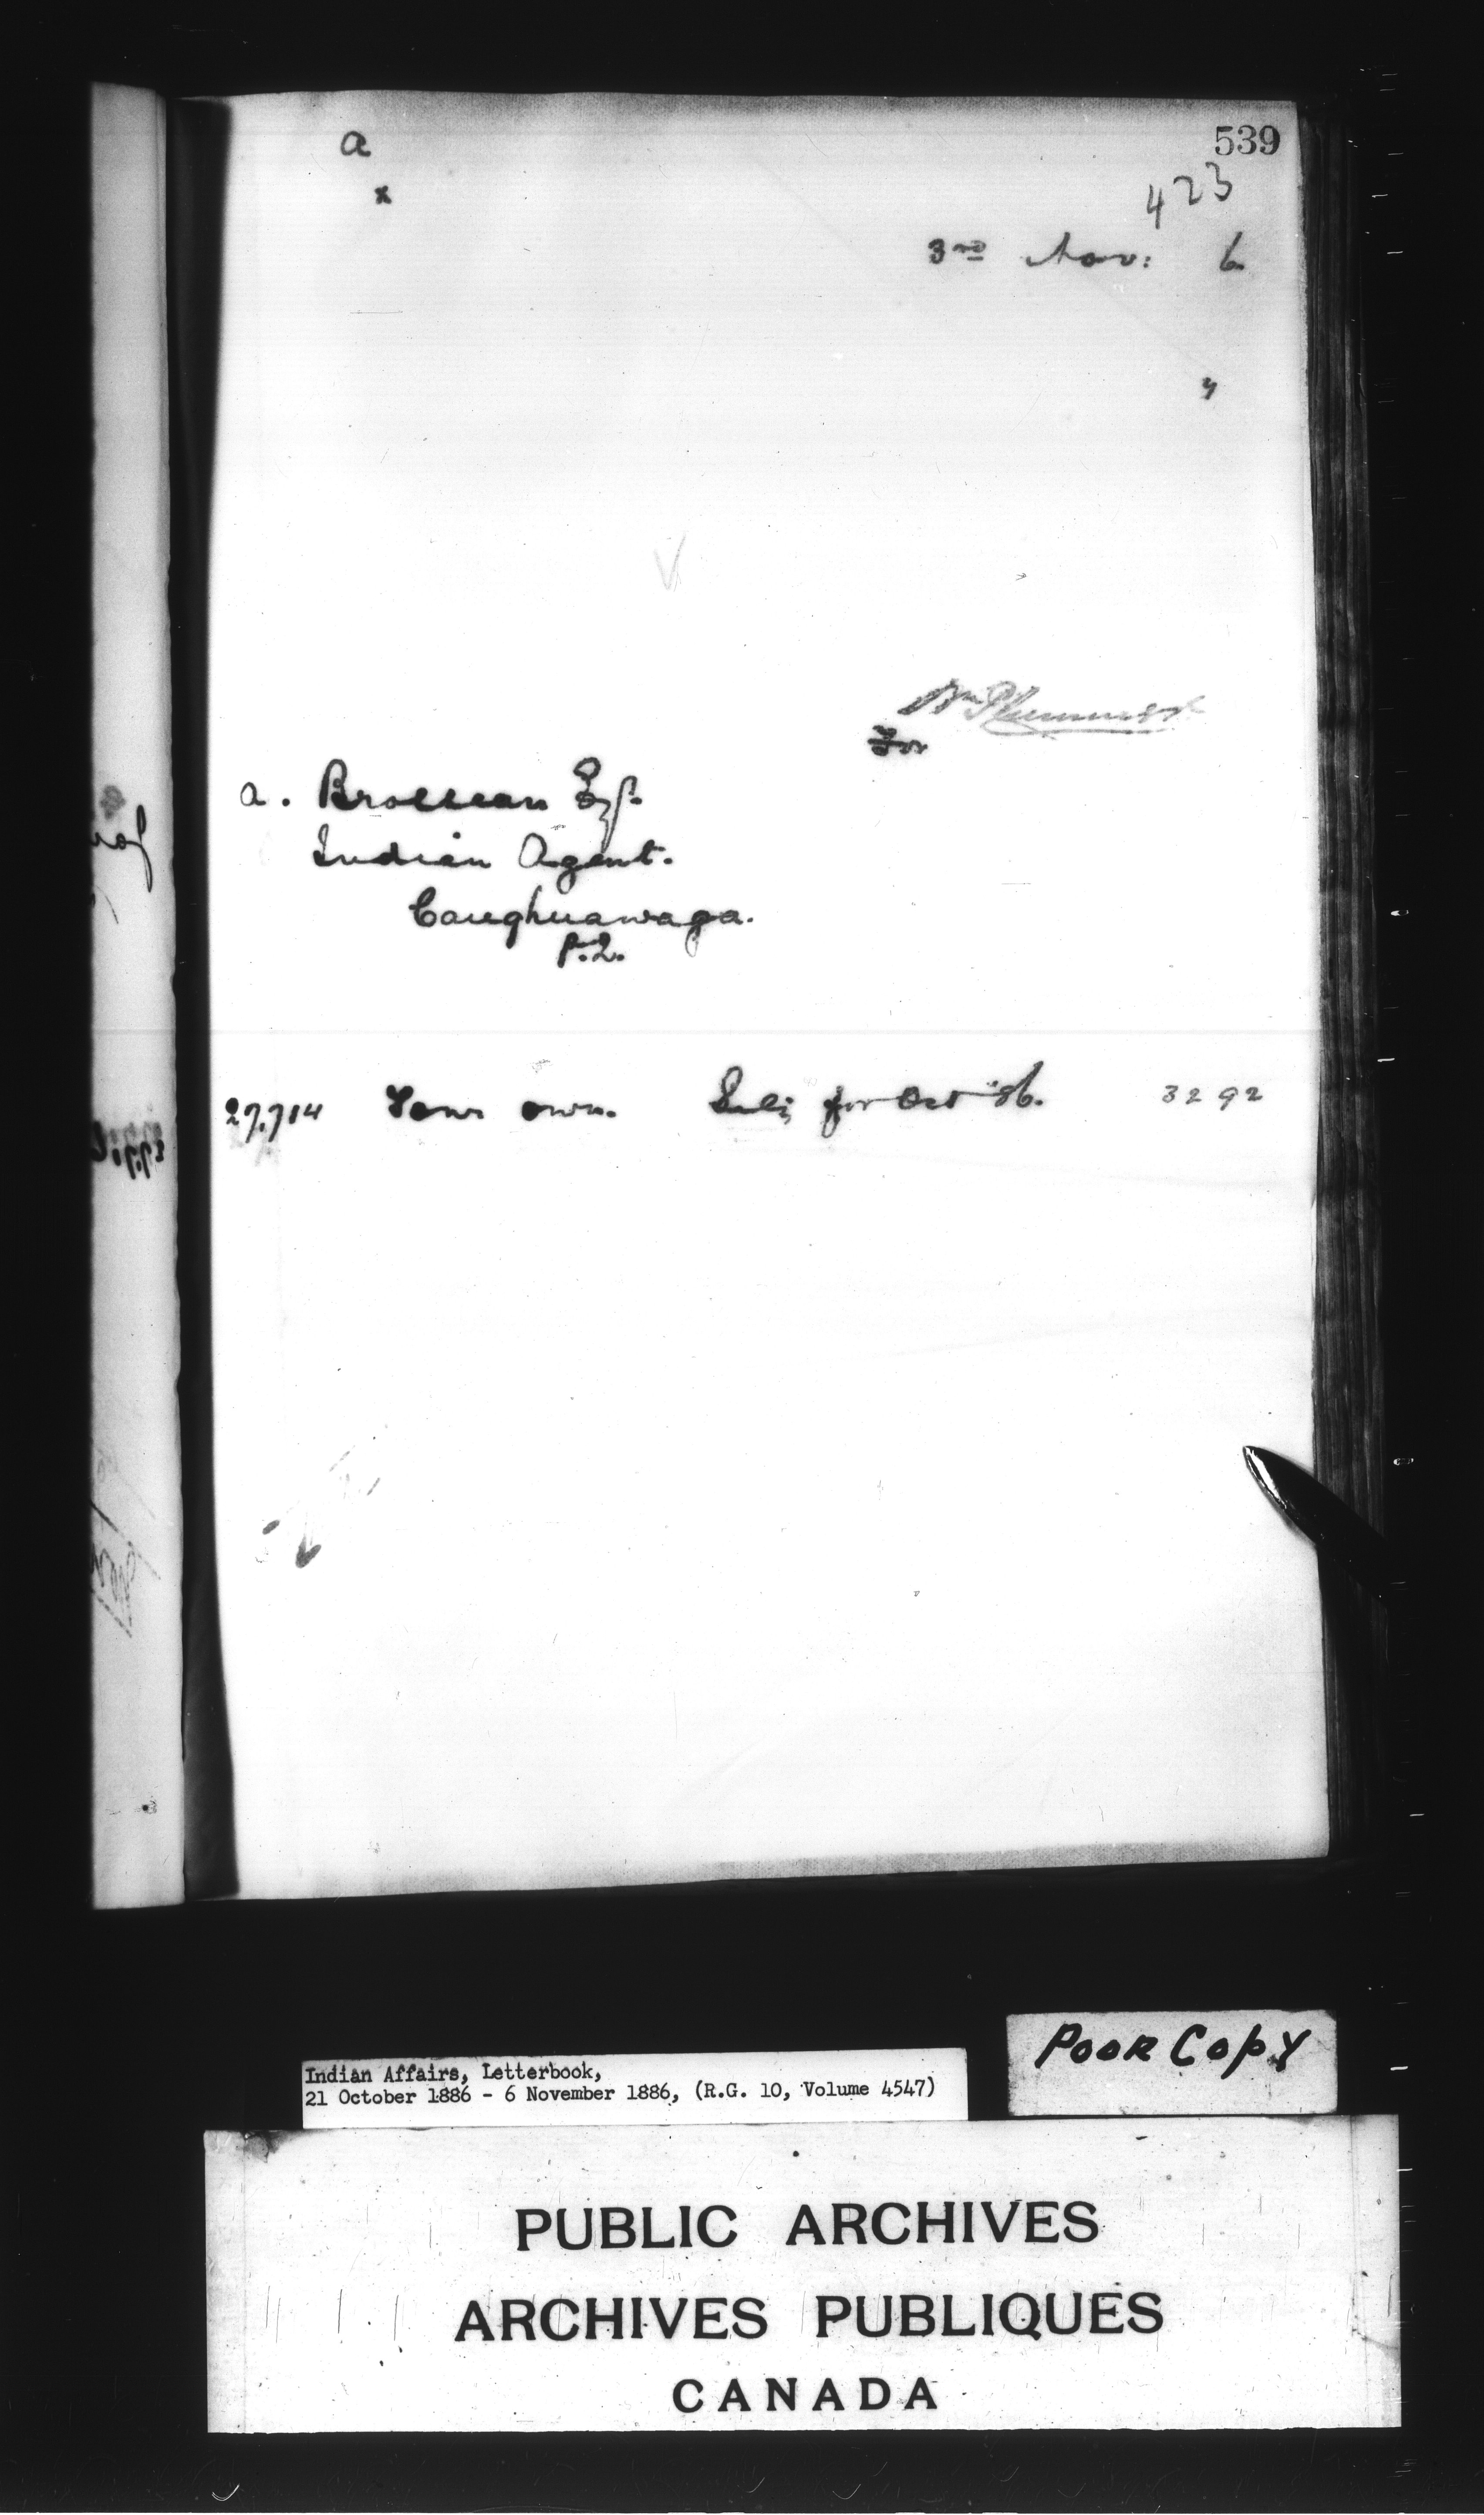 a
539
x
423
3rd Nov: 6
"
Wm Plummer
For
A. Brosseau Esq.
Indian Agent.
Caughnawaga.
P.Q.
27,714 Your own. Saly for Oct '86. 32 92
Indian Affairs, Letterbook,
21 October 1886 - 6 November 1886, (R.G. 10, Volume 4547)
POOR COPY
PUBLIC ARCHIVES
ARCHIVES PUBLIQUES
CANADA